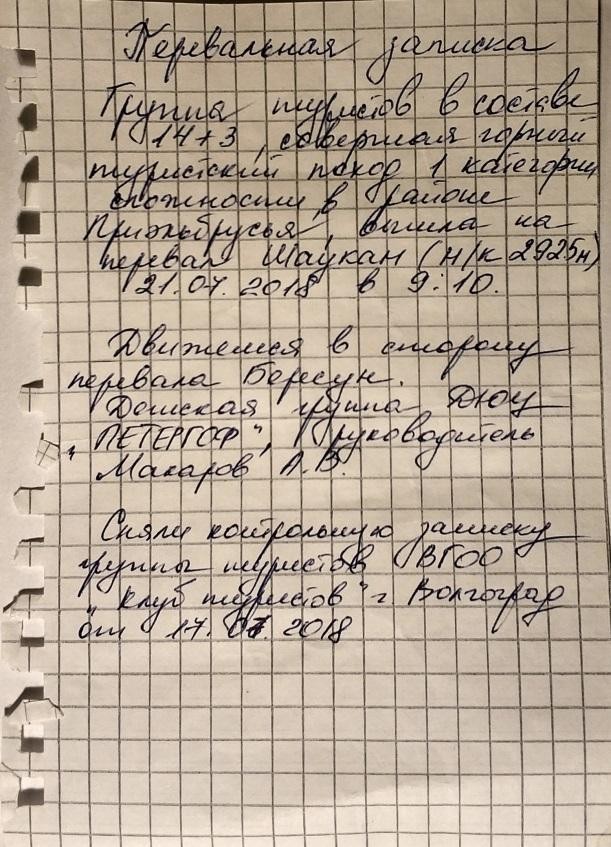 Перевальная записка
Группа туристов в составе
14+3, совершая горный
туристский поход 1 категории
сложности в районе
Приэльбрусья, вышла на
перевал Шаукан (н/к 2925м)
21.07.2018 в 9:10.
Движемся в сторону
перевала Бересун.
Детская группа ДЮЦ
„ПЕТЕРГОФ", руководитель
Макаров А.В.
Сняли контрольную записку
группы туристов ВГОО
„Клуб туристов" г. Волгоград
от 17.07.2018